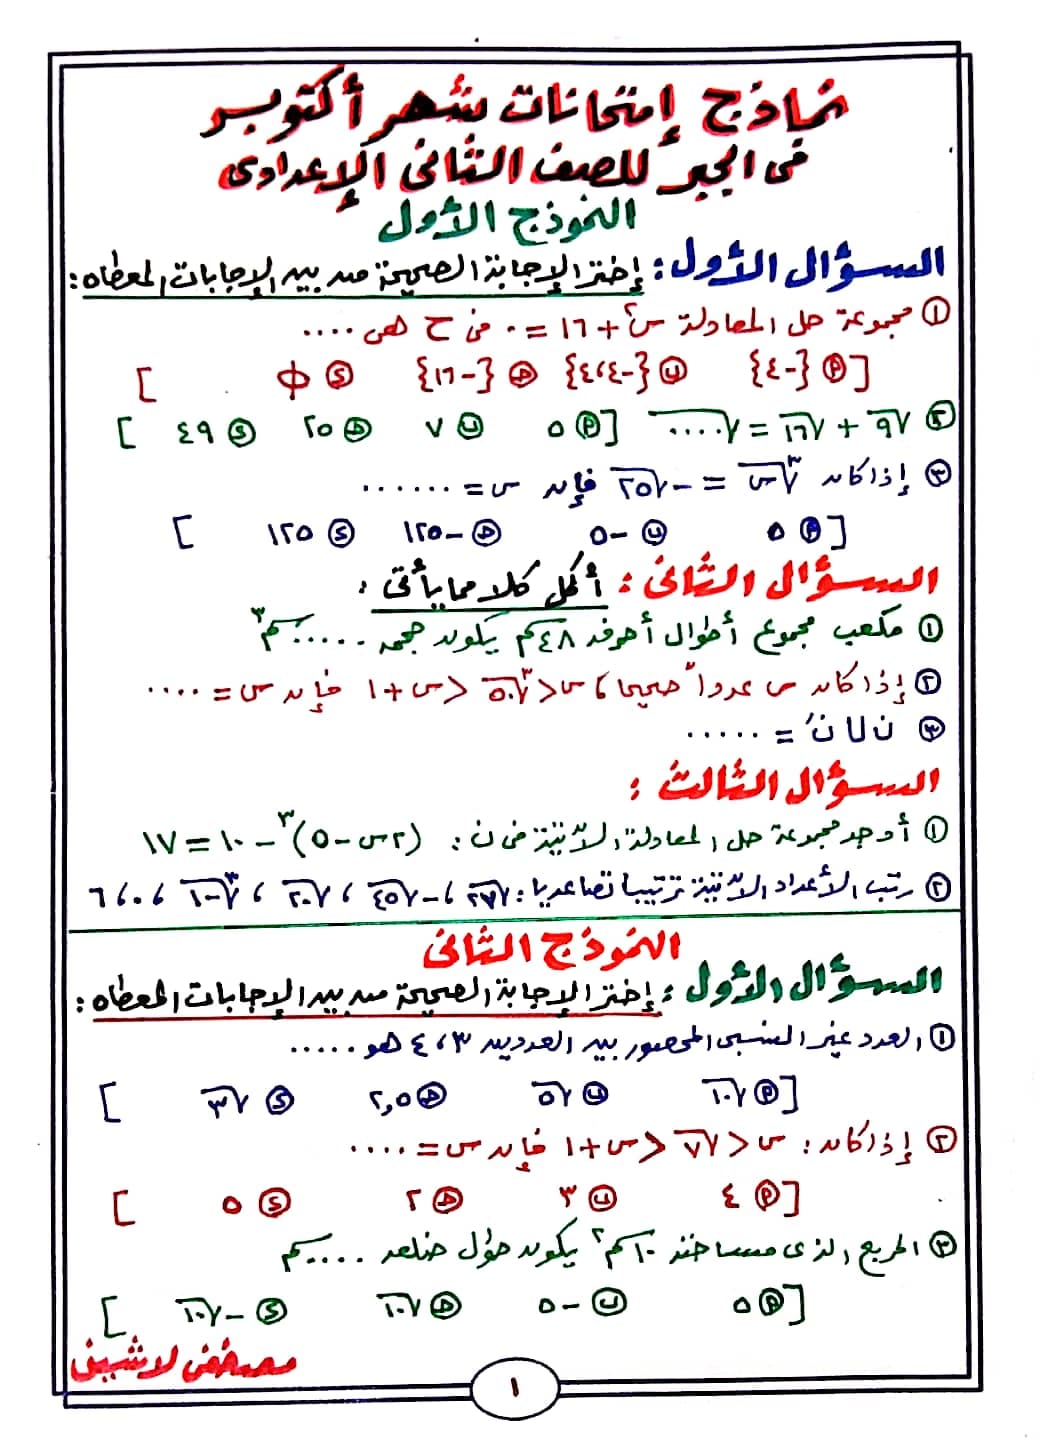 نماذج إمتحانات شهر أكتوبر
فى الجبر للصف الثانى الإعدادى
النموذج الأول
السؤال الأول: إختر الإجابة الصحيحة من بين الإجابات المعطاه:
① مجموعة حل المعادلة س² + ١٦ = ٠ فى ح هى ....
[ Ⓟ {-٤} ⓤ {-٤،٤} ⓗ {-١٦} ⓢ ф ]
② √٩ + √١٦ = √.... [ Ⓟ ٥ ⓤ ٧ ⓗ ٢٥ ⓢ ٤٩ ]
③ إذا كان ∛س = -√٢٥ فإن س = ......
[ Ⓟ ٥ ⓤ -٥ ⓗ -١٢٥ ⓢ ١٢٥ ]
السؤال الثانى: أكمل كلا مما يأتى:
① مكعب مجموع أطوال أحرفه ٤٨ سم يكون حجمه ..... سم³
② إذا كان س عدداً صحيحا، س < ∛٥٠ < س + ١ فإن س = ....
③ ن ∪ نَ = .....
السؤال الثالث:
① أوجد مجموعة حل المعادلة الآتية فى ن: (٢س - ٥)³ - ١٠ = ١٧
② رتب الأعداد الآتية ترتيبا تصاعديا: √٢٧، -√٤٥، √٢٠، ∛-١، ٠، ٦
النموذج الثانى
السؤال الأول: إختر الإجابة الصحيحة من بين الإجابات المعطاه:
① العدد غير النسبى المحصور بين العددين ٣، ٤ هو .....
[ Ⓟ √١٠ ⓤ √٥ ⓗ ٢,٥ ⓢ √٣ ]
② إذا كان: س < √٧ < س + ١ فإن س = ....
[ Ⓟ ٤ ⓤ ٣ ⓗ ٢ ⓢ ٥ ]
③ المربع الذى مساحته ١٠ سم² يكون طول ضلعه .... سم
[ Ⓟ ٥ ⓤ -٥ ⓗ √١٠ ⓢ -√١٠ ]
مصطفى لاشين
١